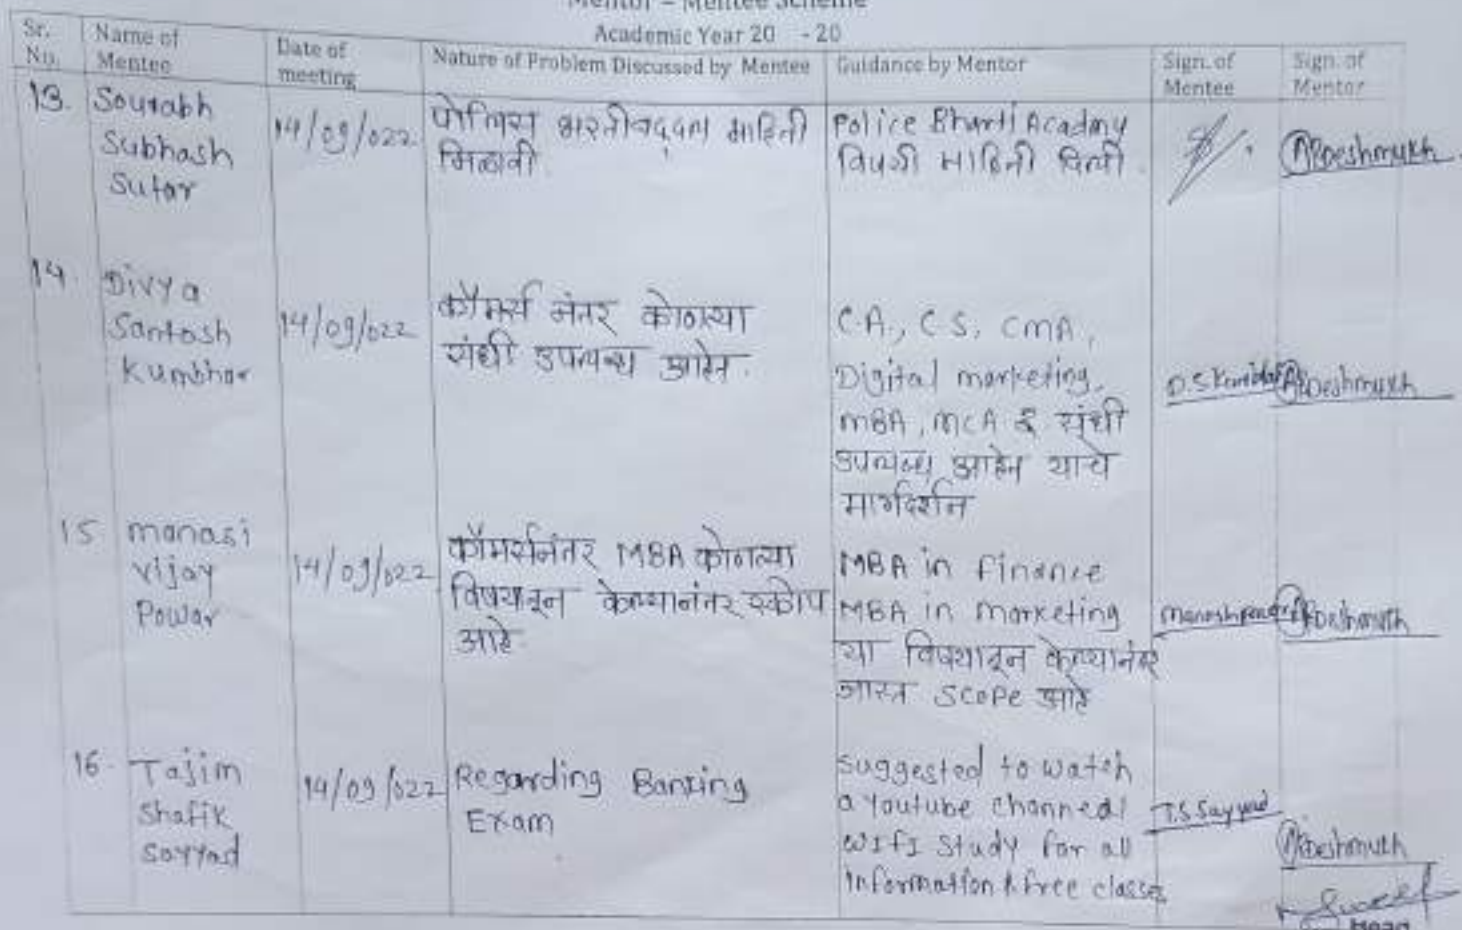 Mentor – Mentee Scheme
Academic Year 20 - 20
Sr. No. Name of Mentee Date of meeting Nature of Problem Discussed by Mentee Guidance by Mentor Sign. of Mentee Sign. of Mentor
13. Sourabh Subhash Sutar 14/09/022 पोलिस भरतीबद्दल माहिती मिळावी. Police Bharti Acadmy विषयी माहिती दिली. Deshmukh
14. Divya Santosh Kumbhar 14/09/022 कॉमर्स नंतर कोणत्या संधी उपलब्ध आहेत. CA, CS, CMA, Digital marketing, MBA, MCA इ संधी उपलब्ध आहेत याचे मार्गदर्शन D.S Kumbhar Deshmukh
15 manasi vijay Powar 14/09/022 कॉमर्सनंतर MBA कोणत्या विषयातून केल्यानंतर स्कोप आहे. MBA in Finance MBA in marketing या विषयातून केल्यानंतर जास्त scope आहे Deshmukh
16. Tajim Shafik Sayyad 14/09/022 Regarding Banking Exam suggested to watch a Youtube channel WIFI Study for all Information & free classes T.S Sayyad Deshmukh
Head